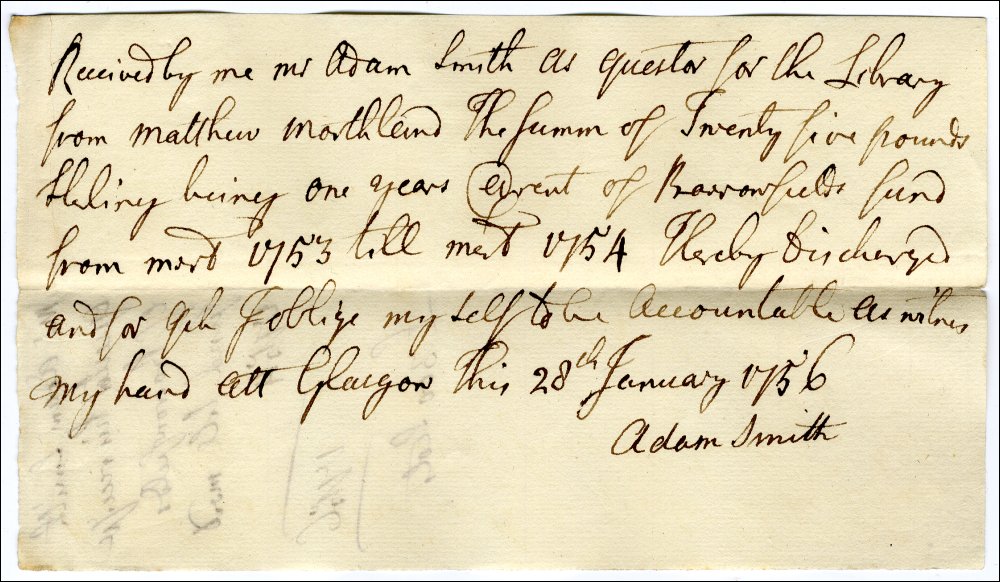 Received by me mr Adam Smith as questor for the Library
from Matthew Morthland The Summ of Twenty five pounds
sterling being one years @rent of Barrowfields fund
from mert 1753 till mert 1754 Hereby Discharged
and for qch I oblige my self to be accountable as witnes
my hand att Glasgow This 28th January 1756
Adam Smith